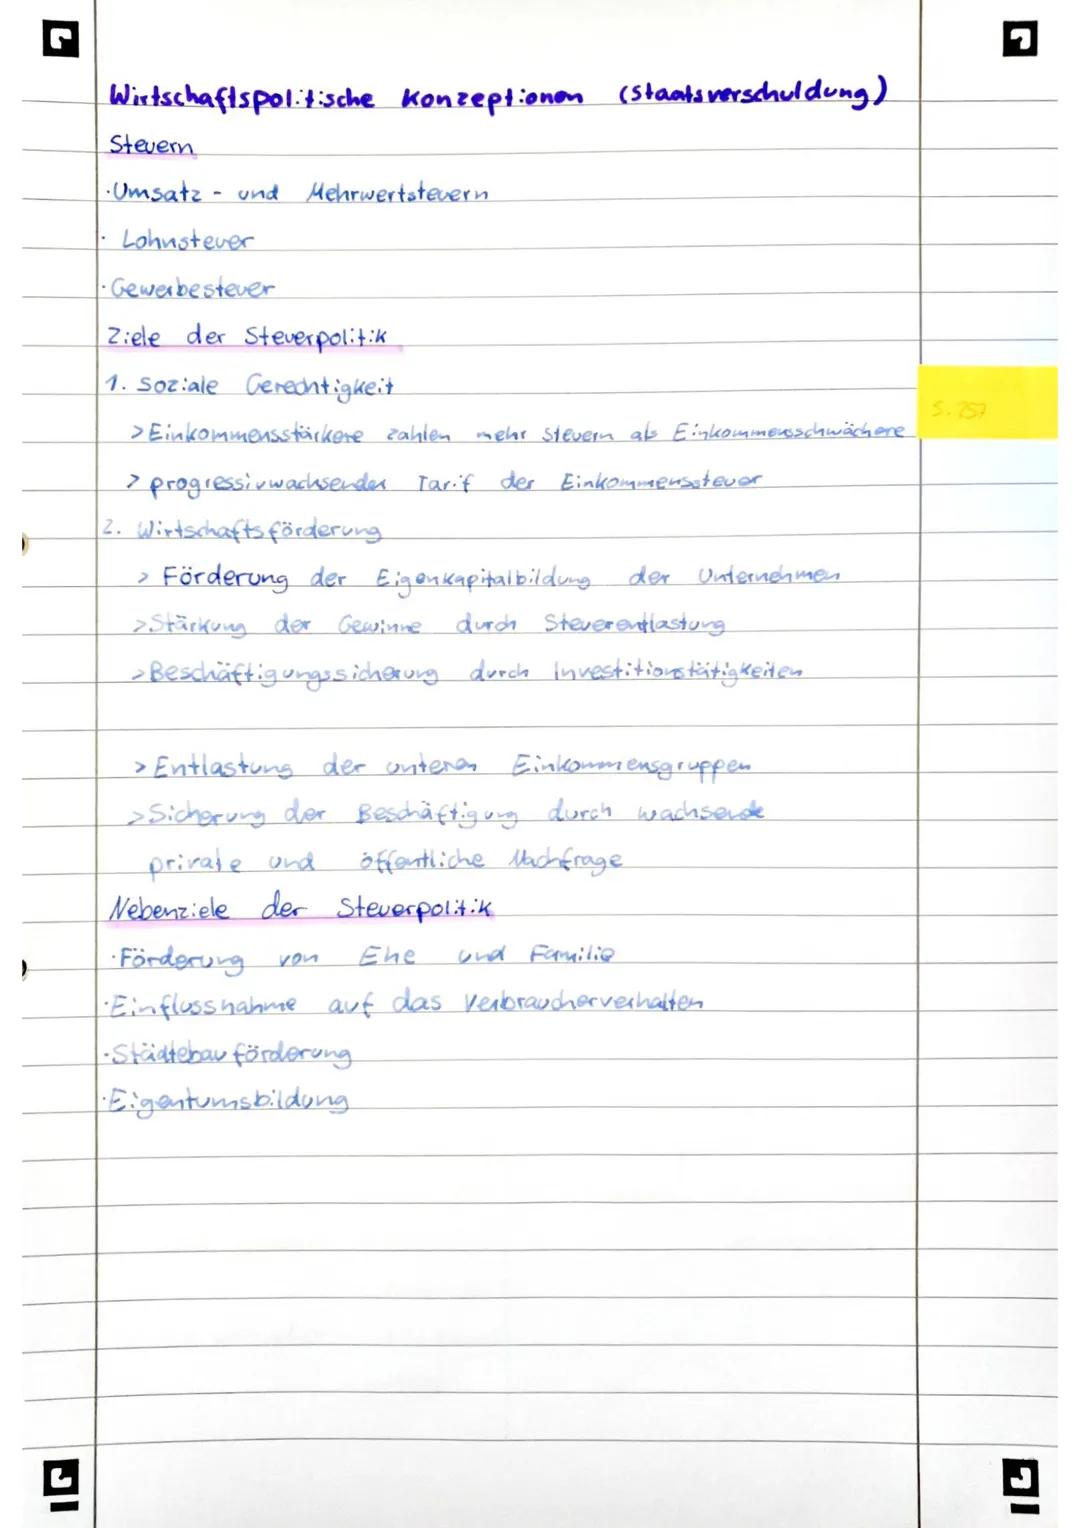 Wirtschaftspolitische Konzeptionen (Staatsverschuldung)
Steuern
·Umsatz- und Mehrwertsteuern
· Lohnsteuer
·Gewerbesteuer
Ziele der Steuerpolitik
1. Soziale Gerechtigkeit
S. 257
>Einkommensstärkere zahlen mehr Steuern als Einkommensschwächere
> progressivwachsender Tarif der Einkommenssteuer
2. Wirtschaftsförderung
> Förderung der Eigenkapitalbildung der Unternehmen
>Stärkung der Gewinne durch Steuerentlastung
>Beschäftigungssicherung durch Investitionstätigkeiten
>Entlastung der unteren Einkommensgruppen
>Sicherung der Beschäftigung durch wachsende
private und öffentliche Nachfrage
Nebenziele der Steuerpolitik
·Förderung von Ehe und Familie
·Einflussnahme auf das Verbraucherverhalten
·Städtebauförderung
·Eigentumsbildung